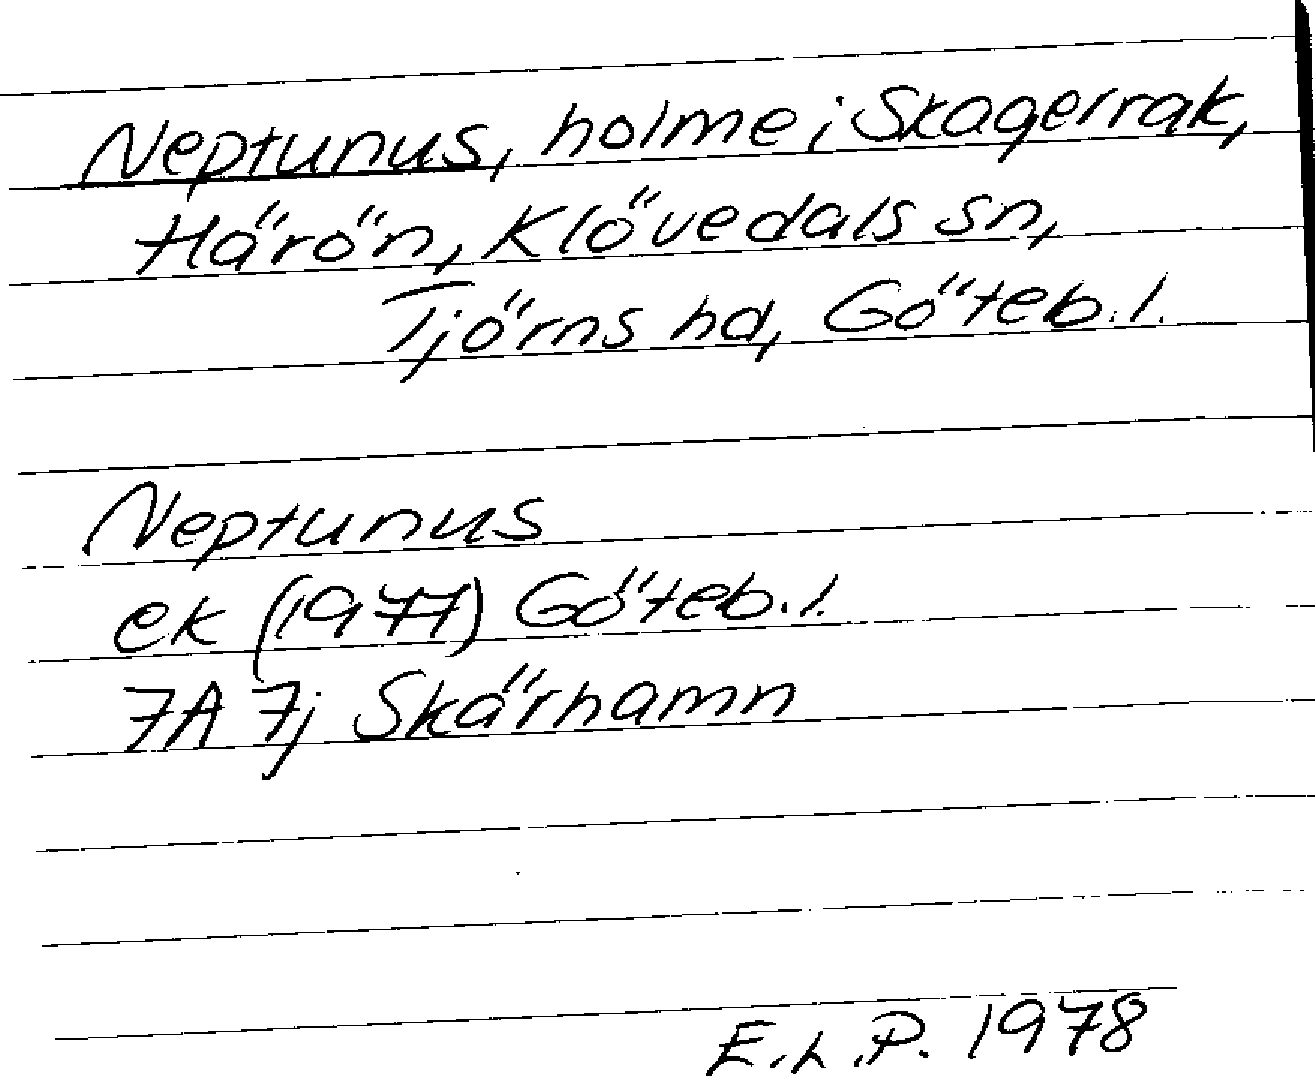 Neptunus, holme i Skagerrak,
Härön, Klövedals sn,
Tjörns hd, Göteb. l.
Neptunus
ek (1977) Göteb. l.
7A 7j Skärhamn
E.L.P. 1978